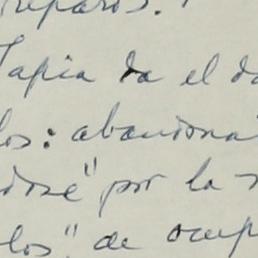 reparos.
Tapia da el do
los: abandona
dose" por la
los", de ocup